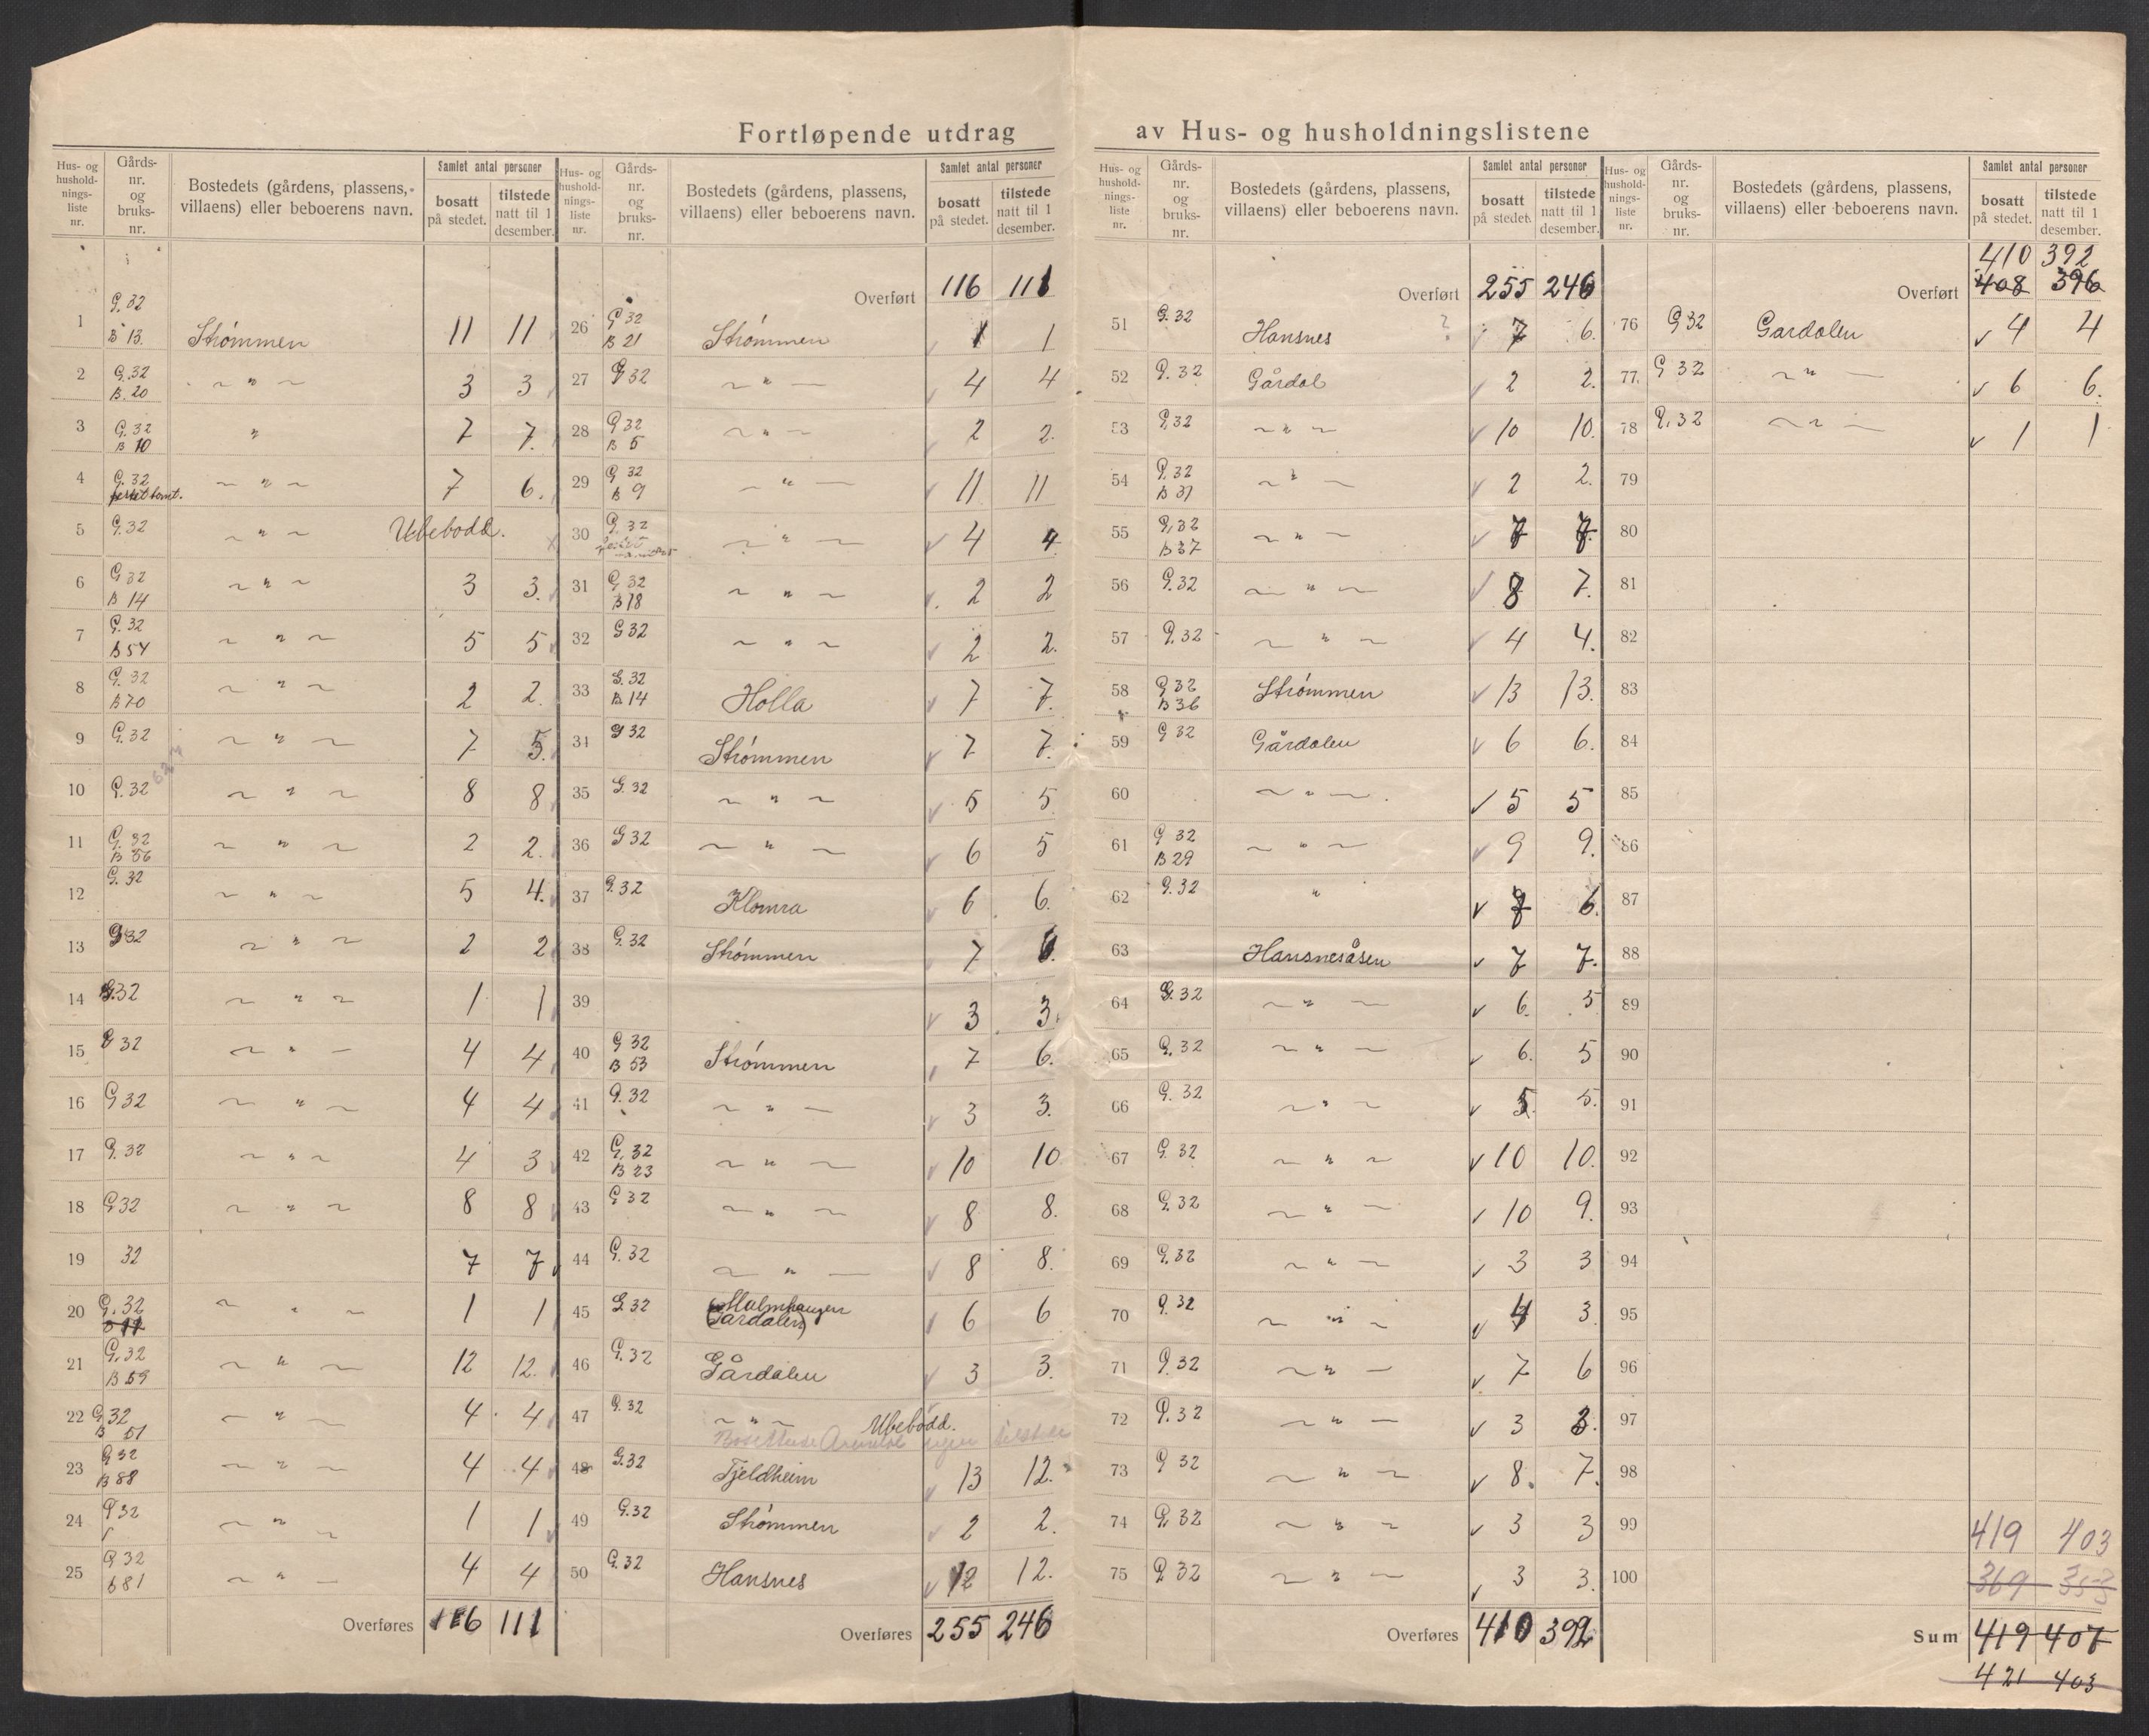 Fortløpende utdrag av Hus- og husholdningslistene
Hus- og hushold-nings-liste nr. | Gårds-nr. og bruks-nr. | Bostedets (gårdens, plassens, villaens) eller beboerens navn. | Samlet antal personer | bosatt på stedet. | tilstede natt til 1 desember.
1 G. 32 B 13. Strømmen 11 11
2 G. 32 B. 20 ~ " ~ 3 3
3 G. 32 B 10 " 7 7.
4 G. 32 festet tomt. ~ " ~ 7 6.
5 G. 32 ~ " ~ Ubebodd.
6 G 32 B 14 ~ " ~ 3 3.
7 G. 32 B 54 ~ " ~ 5 5
8 G. 32 B 70 ~ " ~ 2 2.
9 G. 32 ~ " ~ 7 5.
10 G. 32 ~ " ~ 8 8
11 G. 32 B 56 ~ " ~ 2 2.
12 G. 32 ~ " ~ 5 4.
13 G 32 ~ " ~ 2 2
14 G. 32 ~ " ~ 1 1
15 G 32 ~ " ~ 4 4
16 G 32 ~ " ~ 4 4
17 G. 32 ~ " ~ 4 3
18 G 32 ~ " ~ 8 8
19 32 7 7
20 G. 32 ~ " ~ 1 1
21 G. 32 B 59 ~ " ~ 12 12.
22 G 32 B 51 ~ " ~ 4 4
23 G 32 B 88 ~ " ~ 4 4
24 G 32 ~ " ~ 1 1
25 G 32 B 81 ~ " ~ 4 4
Overføres 116 111
Hus- og hushold-nings-liste nr. | Gårds-nr. og bruks-nr. | Bostedets (gårdens, plassens, villaens) eller beboerens navn. | Samlet antal personer | bosatt på stedet. | tilstede natt til 1 desember.
Overført 116 111
26 G 32 B 21 Strømmen 1 1
27 G 32 ~ " ~ 4 4
28 G 32 B 5 ~ " ~ 2 2.
29 G 32 B 9 ~ " ~ 11 11
30 G. 32 ~ " ~ 4 4
31 G 32 B 18 ~ " ~ 2 2
32 G 32 ~ " ~ 2 2.
33 G. 32 B 14 Holla 7 7.
34 G 32 Strømmen 7 7.
35 G. 32 ~ " ~ 5 5
36 G 32 ~ " ~ 6 5
37 G. 32 Klomra 6 6.
38 G. 32 Strømmen 7 6.
39 3 3.
40 G 32 B 53 Strømmen 7 6.
41 G. 32 ~ " ~ 3 3.
42 G. 32 B 23 ~ " ~ 10 10
43 G 32 ~ " ~ 8 8.
44 G. 32 ~ " ~ 8 8.
45 G. 32 Malmhaugen (Gardalen) 6 6
46 G. 32 Gårdalen 3 3.
47 G. 32 ~ " ~ Ubebodd.
48 G. 32 Fjeldheim 13 12.
49 G. 32 Strømmen 2 2.
50 G. 32 Hansnes 12 12.
Overføres 255 246
Hus- og hushold-nings-liste nr. | Gårds-nr. og bruks-nr. | Bostedets (gårdens, plassens, villaens) eller beboerens navn. | Samlet antal personer | bosatt på stedet. | tilstede natt til 1 desember.
Overført 255 246
51 G. 32 Hansnes ? 7 6.
52 G. 32 Gårdal 2 2.
53 G. 32 ~ " ~ 10 10.
54 G. 32 B 31 ~ " ~ 2 2.
55 G. 32 B 37 ~ " ~ 7 7.
56 G. 32 ~ " ~ 8 7.
57 G. 32 ~ " ~ 4 4.
58 G 32 B 36 Strømmen 13 13.
59 G 32 Gårdalen 6 6.
60 ~ " ~ 5 5
61 G 32 B 29 ~ " ~ 9 9.
62 G. 32 " 7 6.
63 Hansnesåsen 7 7.
64 G. 32 ~ " ~ 6. 5
65 G. 32 ~ " ~ 6. 5
66 G. 32 ~ " ~ 5. 5.
67 G. 32 ~ " ~ 10 10.
68 G. 32 ~ " ~ 10 9.
69 G. 32 ~ " ~ 3 3
70 G. 32 ~ " ~ 4 3.
71 G. 32 ~ " ~ 7 6
72 G. 32 ~ " ~ 3 3.
73 G 32 ~ " ~ 8. 7.
74 G. 32 ~ " ~ 3 3
75 G 32 ~ " ~ 3 3.
Overføres 410 392
Hus- og hushold-nings-liste nr. | Gårds-nr. og bruks-nr. | Bostedets (gårdens, plassens, villaens) eller beboerens navn. | Samlet antal personer | bosatt på stedet. | tilstede natt til 1 desember.
410 392
Overført 408 396
76 G 32 Gardalen 4 4
77. G 32 ~ " ~ 6 6.
78 G. 32 ~ " ~ 1 1
79
80
81
82
83
84
85
86
87
88
89
90
91
92
93
94
95
96
97
98
99 419 403
100 369
Sum 419 407
421 403